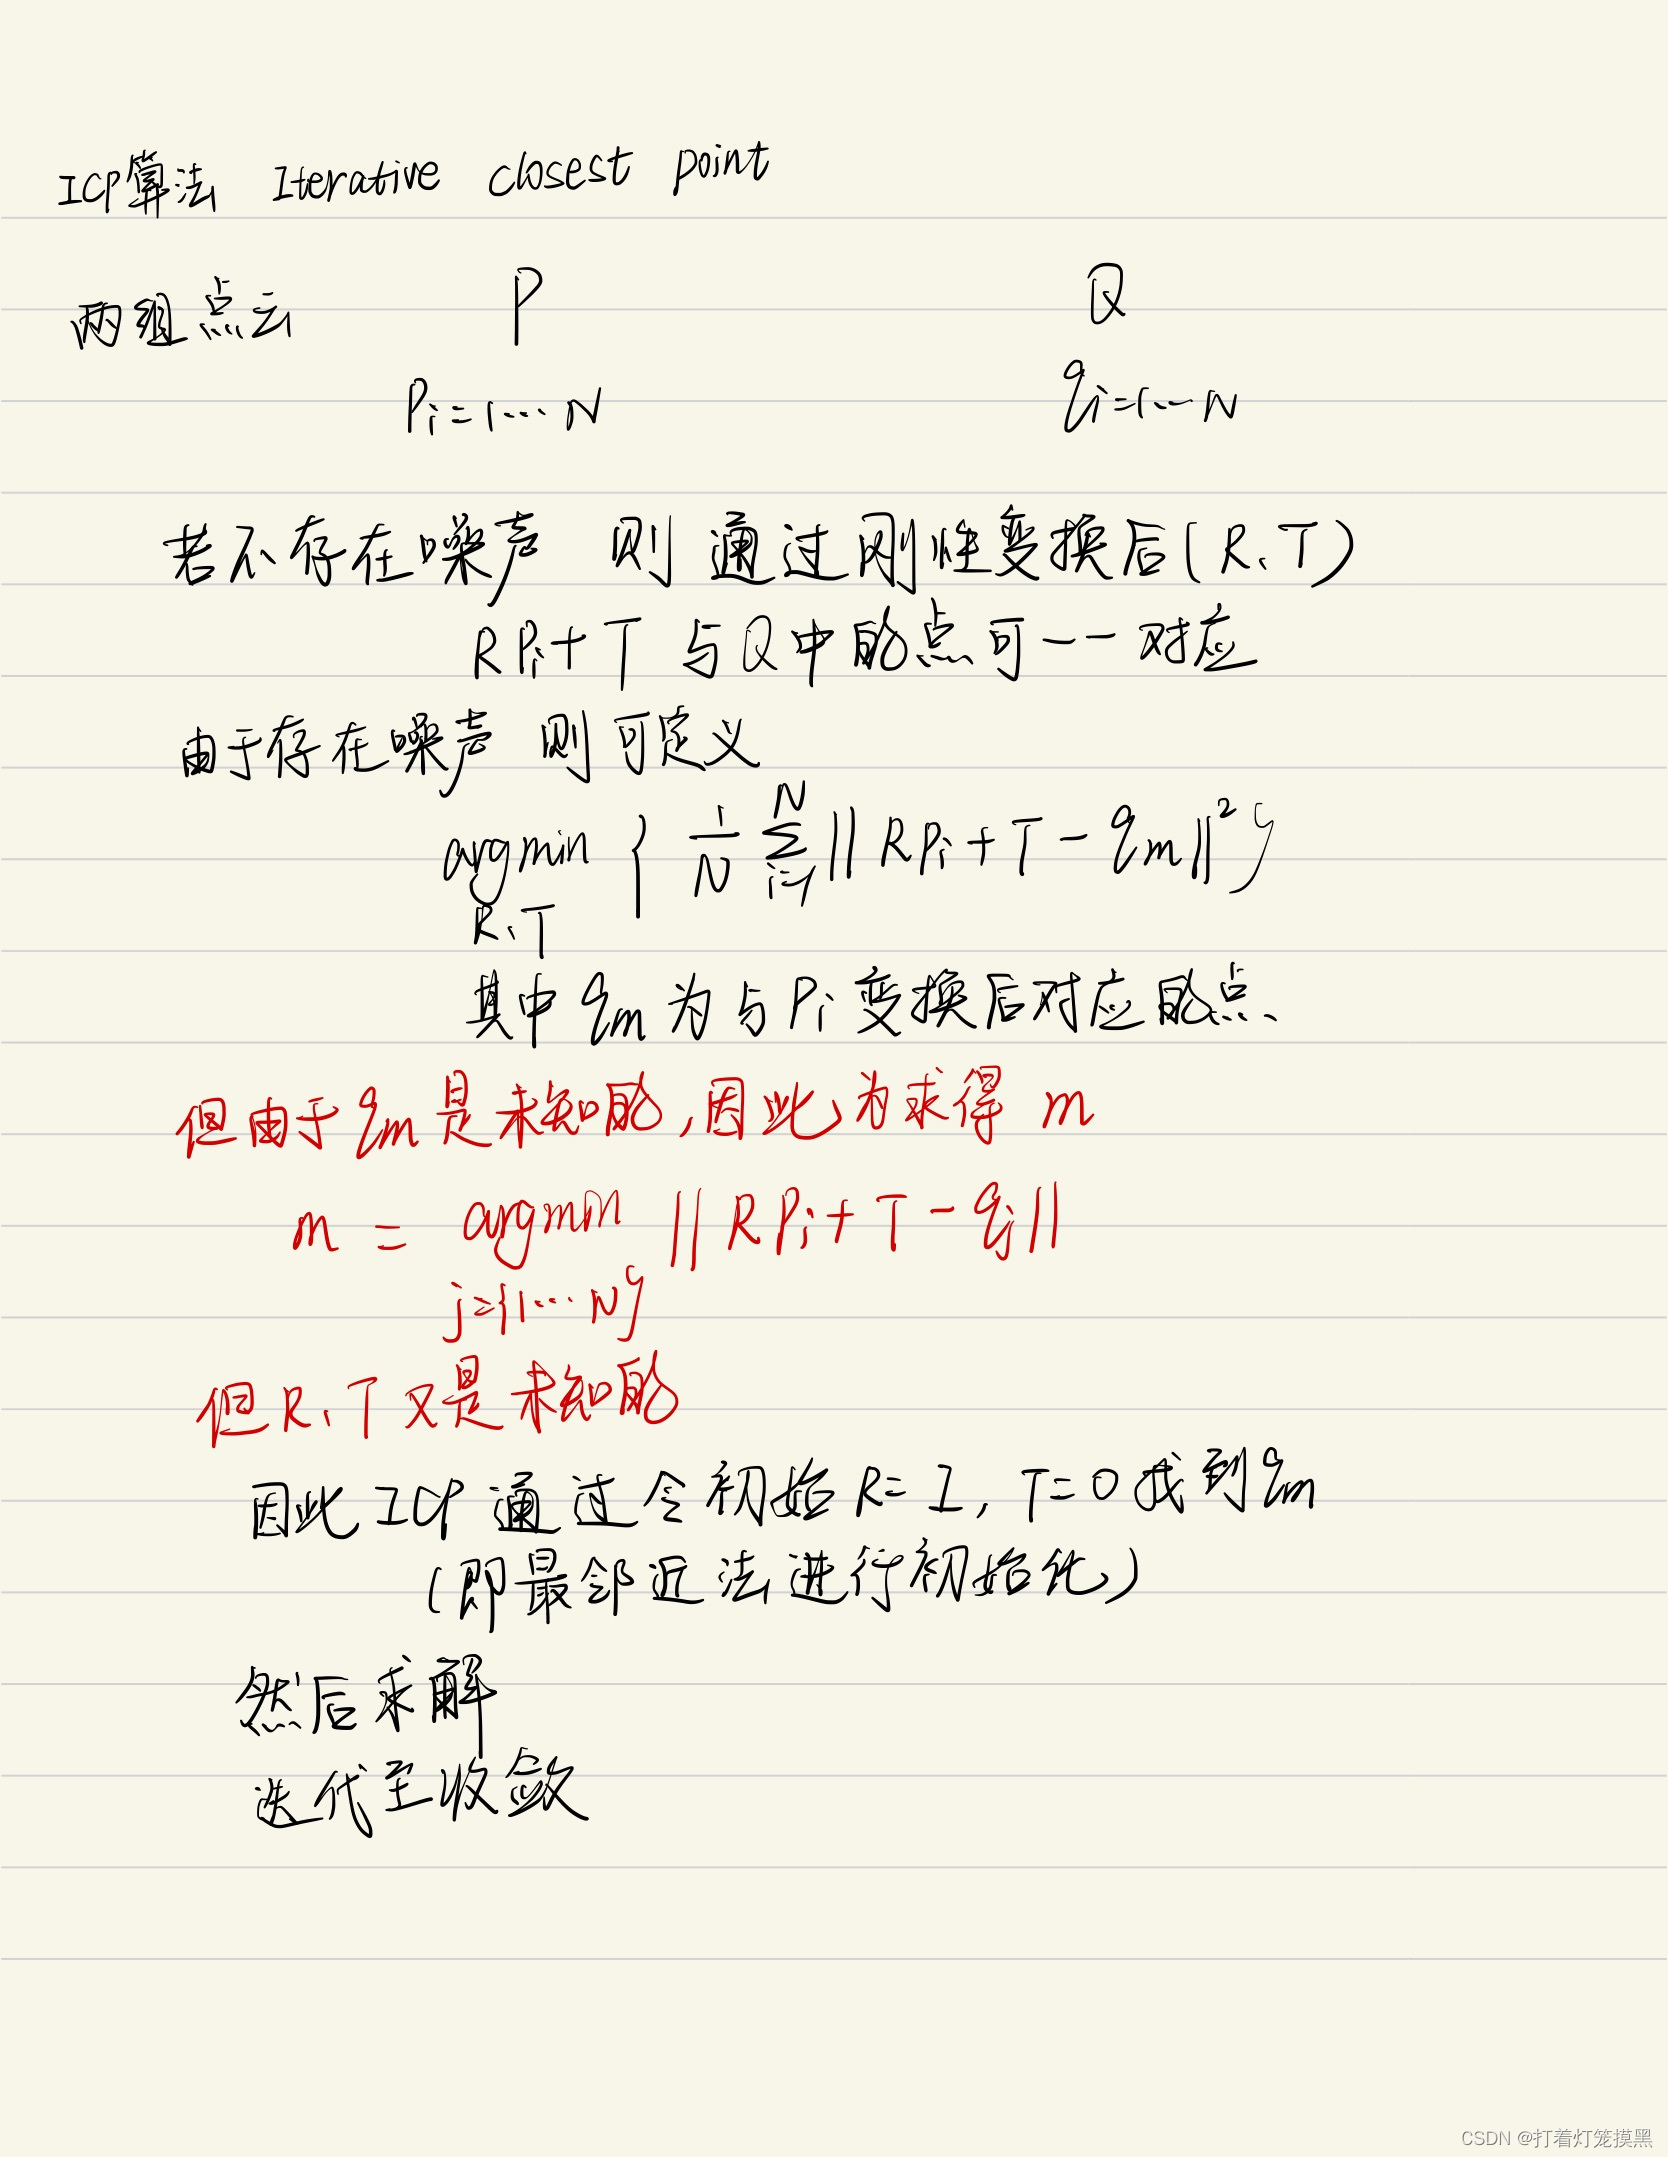 ICP算法 Iterative closest point
两组点云 P Q
Pi=1...N qi=1...N
若不存在噪声 则 通过刚性变换后(R、T)
RPi+T 与Q中的点可一一对应
由于存在噪声 则可定义
argmin { 1/N N∑i=1 || RPi + T - qm ||² }
R、T
其中 qm 为与Pi变换后对应的点、
但由于qm是未知的,因此为求得 m
m = argmin || RPi + T - qj ||
j={1...N}
但R、T又是未知的
因此ICP通过令初始R=I, T=0找到qm
(即最邻近法进行初始化)
然后求解
迭代至收敛
CSDN @打着灯笼摸黑